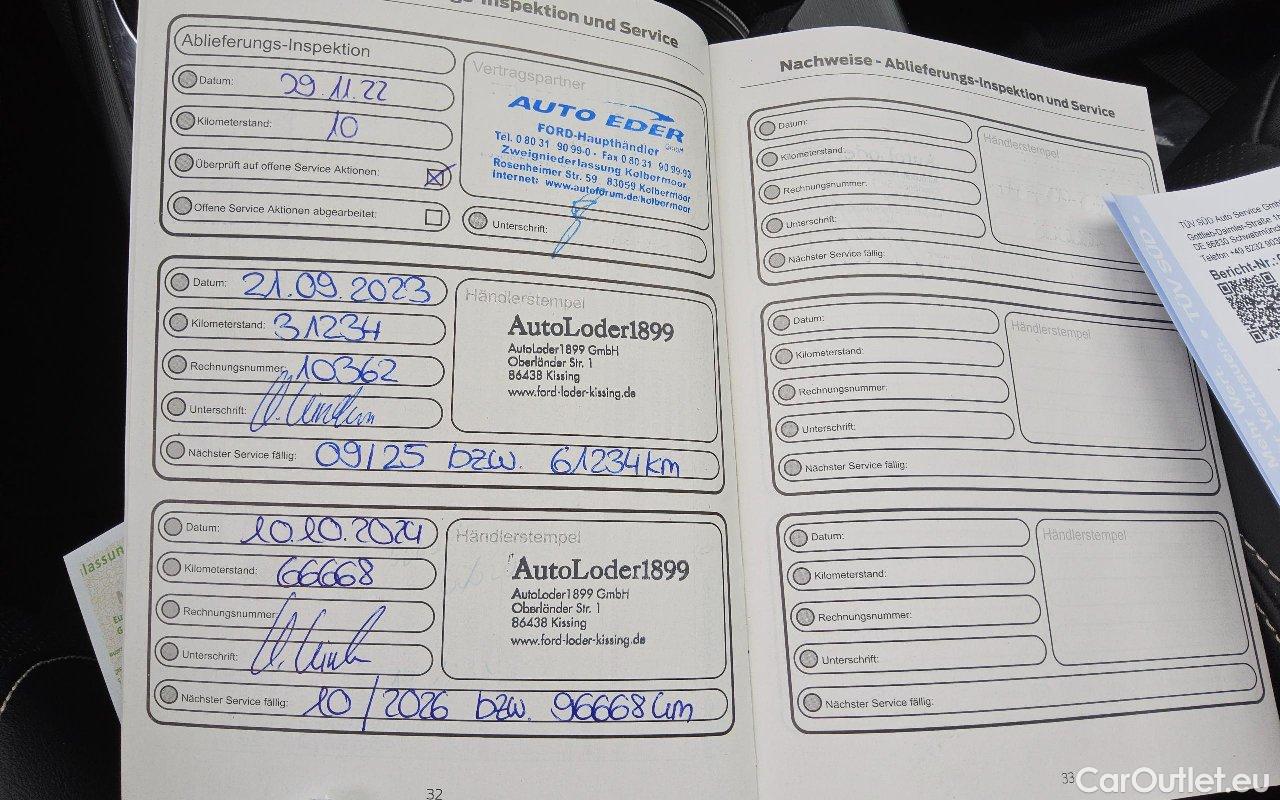 gs-Inspektion und Service
Ablieferungs-Inspektion
Datum: 29.11.22
Kilometerstand: 10
Überprüft auf offene Service Aktionen:
Offene Service Aktionen abgearbeitet:
Vertragspartner
AUTO EDER
GmbH
FORD-Haupthändler
Tel. 0 80 31 90 99-0 - Fax 0 80 31 90 99-93
Zweigniederlassung Kolbermoor
Rosenheimer Str. 59 83059 Kolbermoor
Internet: www.autoforum.de/kolbermoor
Unterschrift:
Datum: 21.09.2023
Kilometerstand: 31234
Rechnungsnummer: 10362
Unterschrift:
Nächster Service fällig: 09/25 bzw. 61234km
Händlerstempel
AutoLoder1899
AutoLoder1899 GmbH
Oberländer Str. 1
86438 Kissing
www.ford-loder-kissing.de
Datum: 10.10.2024
Kilometerstand: 66668
Rechnungsnummer:
Unterschrift:
Nächster Service fällig: 10/2026 bzw. 96668km
Händlerstempel
AutoLoder1899
AutoLoder1899 GmbH
Oberländer Str. 1
86438 Kissing
www.ford-loder-kissing.de
32
Nachweise - Ablieferungs-Inspektion und Service
Datum:
Kilometerstand:
Rechnungsnummer:
Unterschrift:
Nächster Service fällig:
Händlerstempel
Datum:
Kilometerstand:
Rechnungsnummer:
Unterschrift:
Nächster Service fällig:
Händlerstempel
Datum:
Kilometerstand:
Rechnungsnummer:
Unterschrift:
Nächster Service fällig:
Händlerstempel
33
TÜV SÜD Auto Service Gm
Gottlieb-Daimler-Straße
DE 86830 Schwabmün
Telefon +49 8232
Bericht-Nr.:
TÜV SÜD
Mehr Wert.
Vertrauen.
lassun
CarOutlet.eu